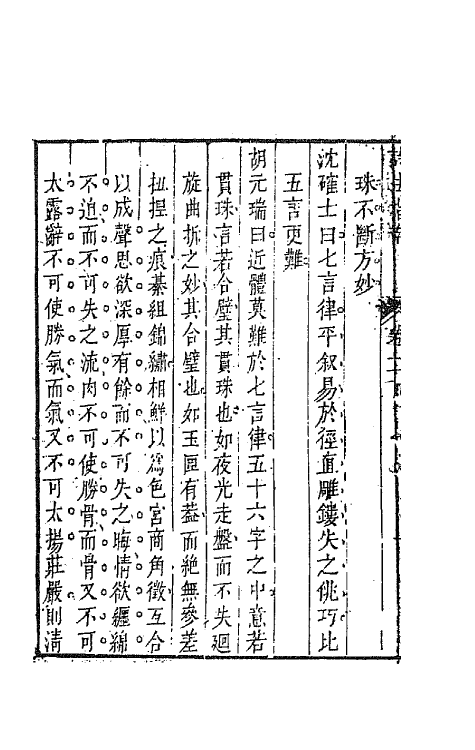 珠不斷方妙
沈確士曰七言律平叙易於徑直雕鏤失之佻巧比
五言更難
胡元瑞曰近體莫難於七言律五十六字之中意若
貫珠言若合璧其貫珠也如夜光走盤而不失廻
旋曲折之妙其合璧也如玉匣有葢而絶無參差
扭捏之痕綦組錦繡相鮮以爲色宮商角徵互合
以成聲思欲深厚有餘而不可失之晦情欲纒綿
不迫而不可失之流肉不可使勝骨而骨又不可
太露辭不可使勝氣而氣又不可太揚莊嚴則清